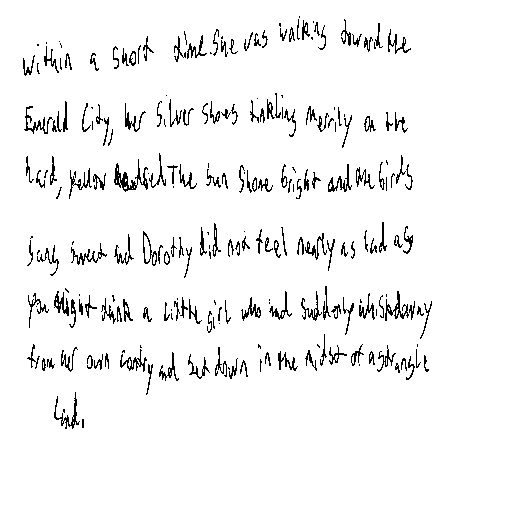 within a short time. She was walking toward the
Emerald City, her Silver Shoes tinkling merrily on the
hard, yellow The Sun Shone bright and the birds
Sang sweet and Dorothy did not feel nearly as bad as
you might think a little girl who had suddenly whisked away
from her own contry and set down in the midst of a strangle
land.